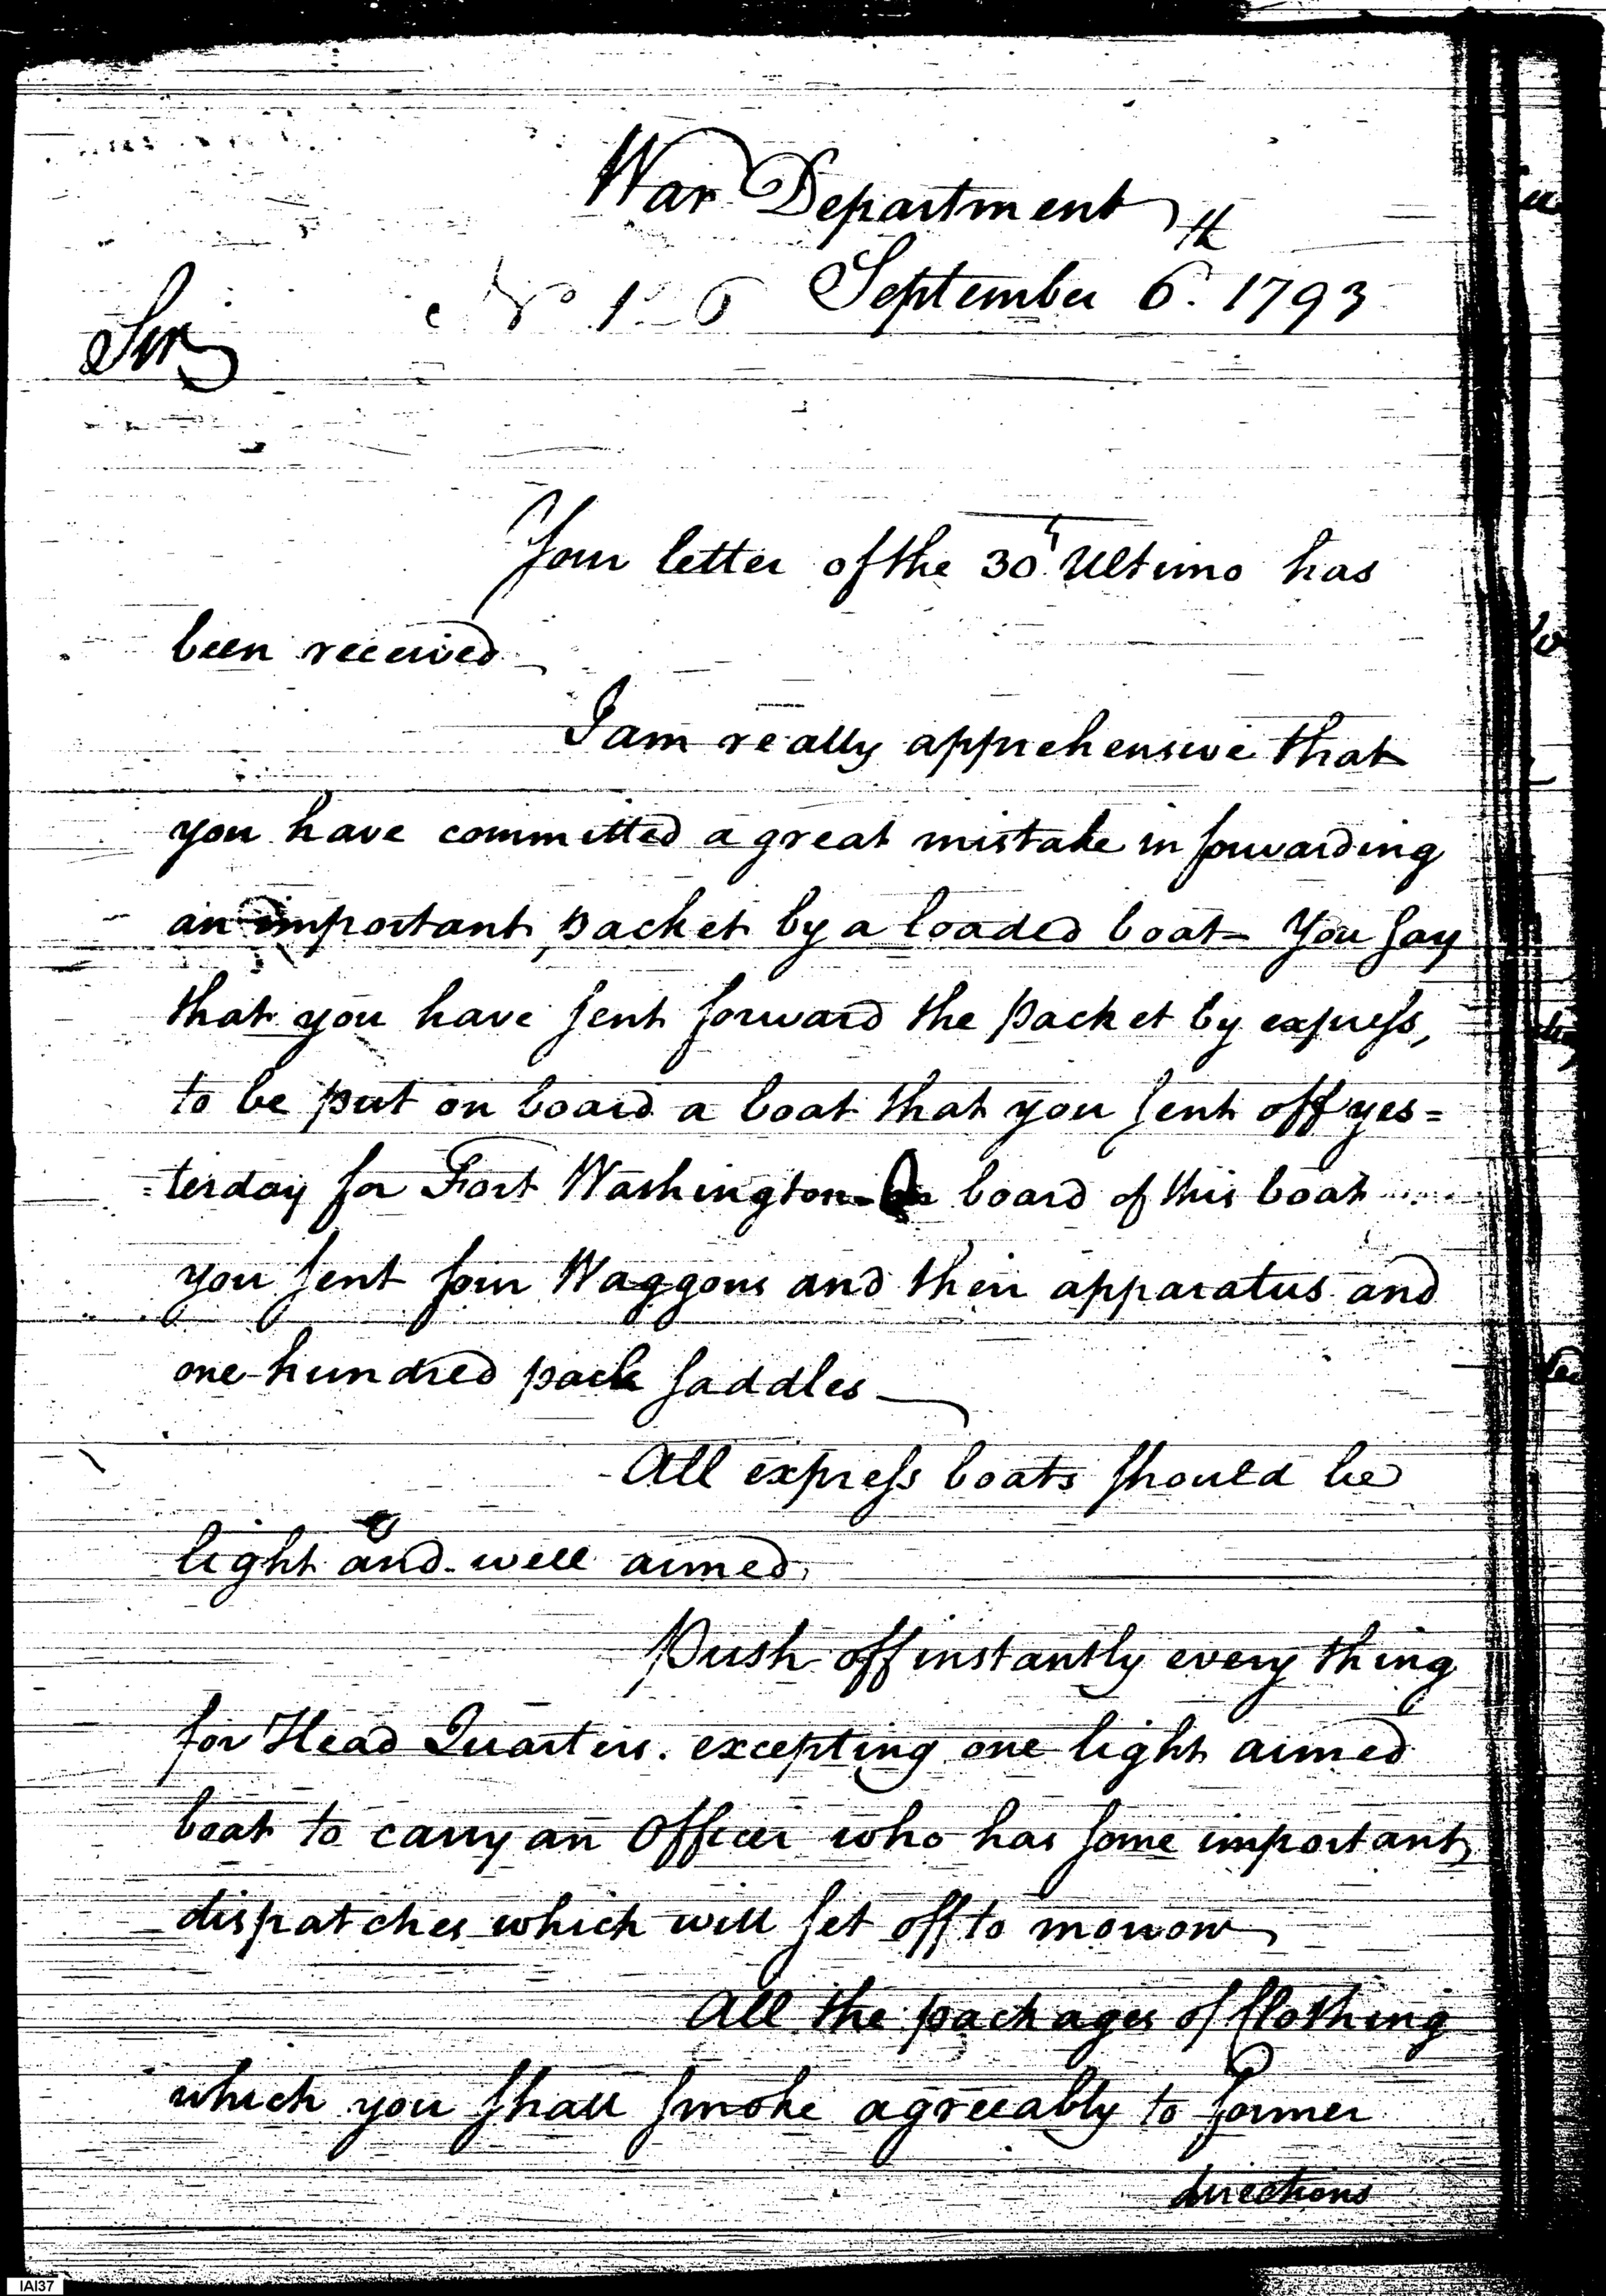 War Department
September 6th. 1793
Sir,
Your letter of the 30th Ultimo has
been received
I am really apprehensive that
you have committed a great mistake in forwarding
an important packet by a loaded boat - You say
that you have sent forward the packet by express,
to be put on board a boat that you sent off yes=
=terday for Fort Washington - On board of this boat
you sent four Waggons and their apparatus and
one hundred pack saddles
All express boats should be
light and well armed.
Push off instantly every thing
for Head Quarters. excepting one light armed
boat to carry an Officer who has some important
dispatches which will set off to morrow
All the packages of Clothing
which you shall smoke agreeably to former
directions
IAI37